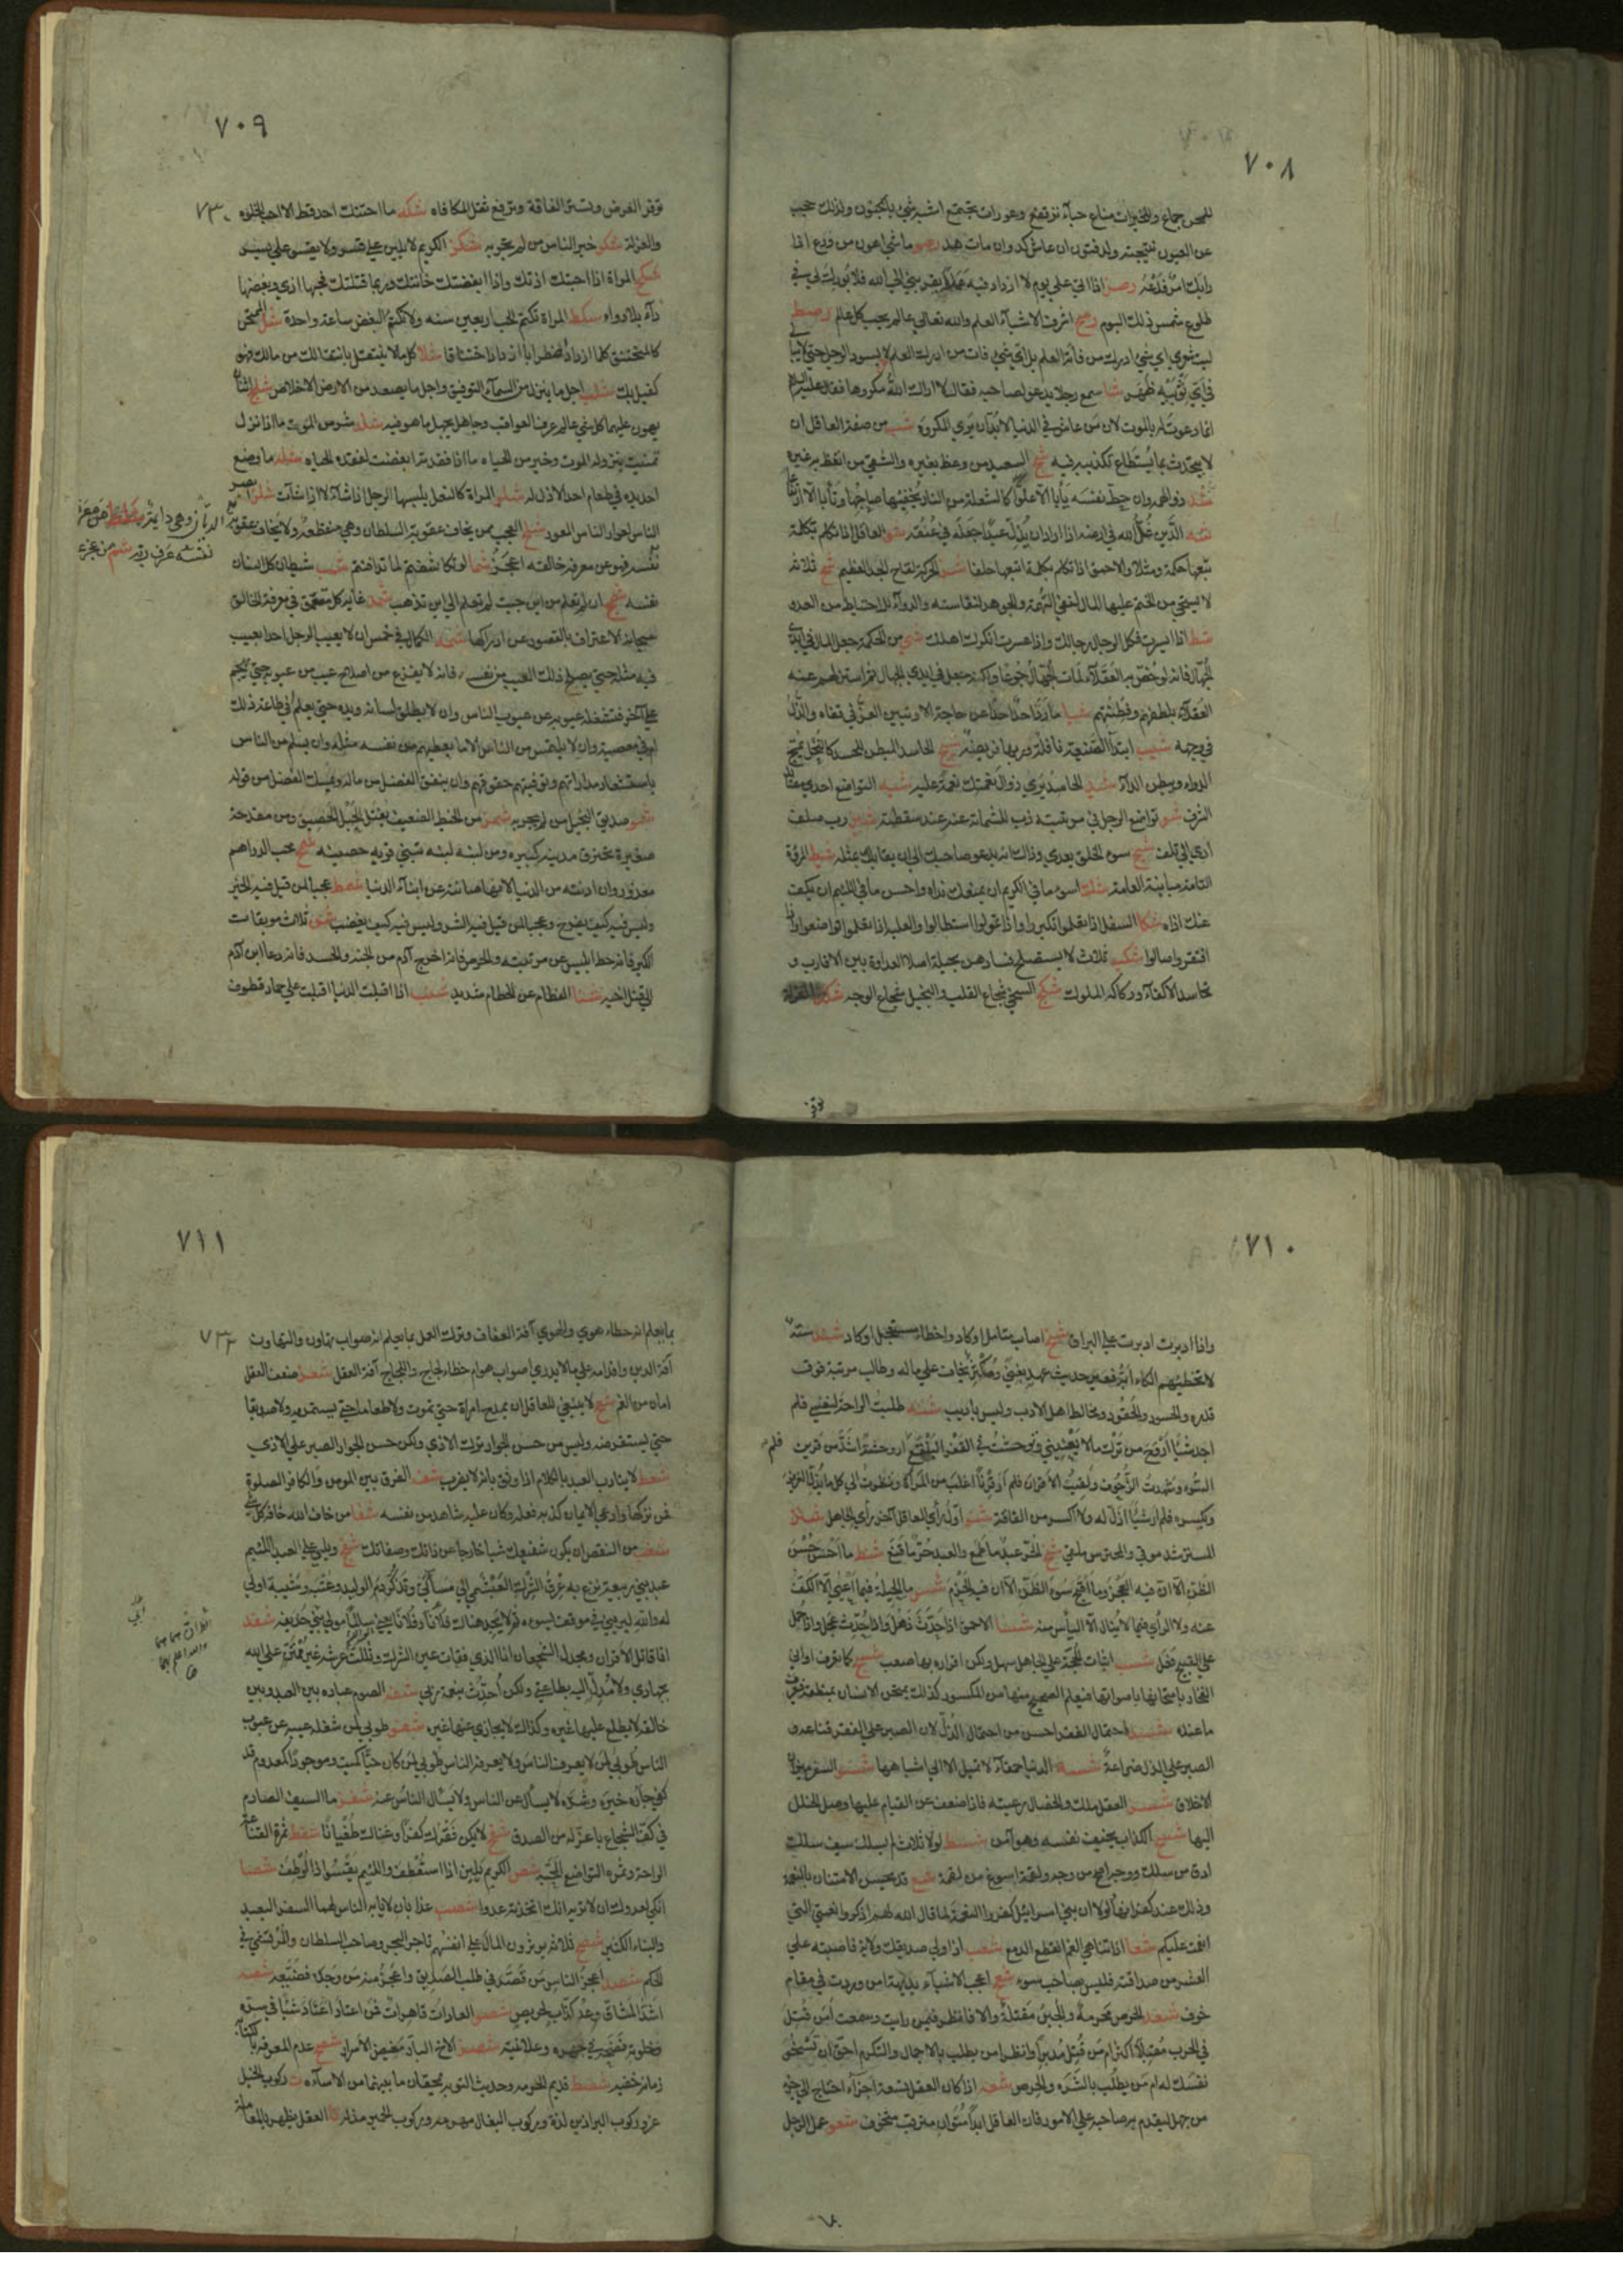 ٧٠٨
للمحن جماع وللخيرات مناع حياء يرتفع وعورات تجتمع اشبه شيء بالجنون ولذلك حجب
عن العيون نتيجته ولد فتون ان عاش كد وان مات هد رصو ما شيء اهون من ورع اذا
رابك امر فدعه رصز اذا اتى علي يوم لا ازداد فيه عملا يقربني الى الله فلا بورك لي في
طلوع شمس ذلك اليوم رصح اشرف الاشياء العلم والله تعالى عالم يحب كل عالم رصط
ليت شعري اي شيء ادرك من فاته العلم بل اي شيء فات من ادرك العلم لا يسود الرجل حتى لا يبالي
في اي ثوبيه ظهر شا سمع رجلا يدعو لصاحبه فقال لا اراك الله مكروها فقال عليه السلام
انما دعوت له بالموت لان من عاش في الدنيا لا بد ان يرى المكروه شب من صفة العاقل ان
لا يتحدث بما يستطاع تكذيبه فيه شج السعيد من وعظ بغيره والشقي من اتعظ به غيره
شد ذو الهمة وان حط نفسه يابا الا علوا كالشعلة من النار يخفيها صاحبها وتابا الا ارتفاعا
شه الدين غل الله في ارضه اذا اراد ان يذل عبدا جعله في عنقه شو العاقل اذا تكلم بكلمة
تبعها حكمة ومثلا والاحمق اذا تكلم بكلمة اتبعها حلفا شز الحركة لقاح الجد العظيم شح ثلاثة
لا يستحى من الختم عليها المال لنفي التهمة والجوهر لنفاسته والدواء للاحتياط من العدو
شط اذا ايسرت فكل الرجال رجالك واذا عسرت انكرك اهلك شي من الحكمة جعل المال في ايدي
الجهال فانه لو خص به العقلاء لمات الجهال جوعا ولكنه جعل في ايدي الجهال ثم استنزلهم عنه
العقلاء بلطفهم وفطنتهم شيا ما رد احد احدا عن حاجة الا وتبين العز في قفاه والذل
في وجهه شيب ابتداء الصنيعة نافلة وربها فريضة شيج الحاسد المبطن للحسد كالنحل يمج
الدواء ويبطن الداء شيد الحاسد يرى زوال نعمتك نعمة عليه شيه التواضع احدى مصائد
الشرف شيو تواضع الرجل في مرتبته ذب للشماتة عنه عند سقطته شيز رب صلف
ادى الى تلف شيح سوء الخلق يعدي وذاك انه يدعو صاحبك الى ان يقابلك بمثله شيط المروة
التامة مباينة العامة شك اسوء ما في الكريم ان يمنعك نداه واحسن ما في اللئيم ان يكف
عنك اذاه شكا السفل اذا تعلموا تكبروا واذا تمولوا استطالوا والعلية اذا تعلموا تواضعوا واذا
افتقروا صالوا شكب ثلاث لا يستصلح فسادهن بحيلة اصلا العداوة بين الاقارب و
تحاسد الاكفاء وركاكة الملوك شكج السخي شجاع القلب والبخيل شجاع الوجه شكد
٧٠٩
٧٣٠
توفر العرض وتستر الفاقة وترفع ثقل المكافاة شكه ما احتنك احد قط الا احب الخلوة
والعزلة شكو خير الناس من لم تجربه شكز الكريم لا يلين على قسر ولا يقسو على يسر
شكح المراة اذا احبتك اذتك واذا ابغضتك خانتك وربما قتلتك فحبها اذى وبغضها
داء بلا دواء شكط المراة تكتم الحب اربعين سنة ولا تكتم البغض ساعة واحدة شل الممتحن
كالمختنق كلما ازداد اضطرابا ازداد اختناقا شلا كل ما لا ينتقل بانتقالك من مالك فهو
كفيل بك شلب اجل ما ينزل من السماء التوفيق واجل ما يصعد من الارض الاخلاص شلج اثنان
يهون عليهما كل شيء عالم عرف العواقب وجاهل يجهل ما هو فيه شلد شر من الموت ما اذا نزل
تمنيت بنزوله الموت وخير من الحياة ما اذا فقدته ابغضت لفقده الحياة شله ما وضع
احد يده في طعام احد الا ذل له شلو المراة كالنعل يلبسها الرجل اذا شاء لا اذا شاءت شلز ابصر
الناس لعوار الناس المعور شلح العجب ممن يخاف عقوبة السلطان وهي منقطعة ولا يخاف عقوبة
الديان وهي دايمة شلط من عرف
نفسه عرف ربه شم من عجز عن
نفسه فهو عن معرفة خالقه اعجز شما لو تكاشفتم لما تدافنتم شمب شيطان كل انسان
نفسه شمج ان لم تعلم من اين جئت لم تعلم الى اين تذهب شمد غاية كل متعمق في معرفة الخالق
سبحانه الاعتراف بالقصور عن ادراكها شمه الكمال في خمس ان لا يعيب الرجل احدا بعيب
فيه مثله حتى يصلح ذلك العيب من نفسه فانه لا يفرغ من اصلاح عيب من عيوبه حتى يهجم
على آخر فتشغله عيوبه عن عيوب الناس وان لا يطلق لسانه ويده حتى يعلم افي طاعة ذلك
ام في معصية وان لا يلتمس من الناس الا ما يعطيهم من نفسه مثله وان يسلم من الناس
باستشعار مداراتهم وتوفيتهم حقوقهم وان ينفق الفضل من ماله ويمسك الفضل من قوله
شمو صديق البخيل من لم يجربه شمز من الخيط الضعيف يفتل الحبل الحصيف ومن مقدحة
صغيرة تحترق مدينة كبيرة ومن لبنة لبنة تبنى قرية حصينة شمح محب الدراهم
معذور وان ادنته من الدنيا لانها صانته عن ابناء الدنيا شمط عجبا لمن قيل فيه الخير
وليس فيه كيف يفرح وعجبا لمن قيل فيه الشر وليس فيه كيف يغضب شن ثلاث موبقات
الكبر فانه حط ابليس عن مرتبته والحرص فانه اخرج آدم من الجنة والحسد فانه دعا ابن آدم
الى قتل اخيه شنا الفطام عن الحطام شديد شنب اذا اقبلت الدنيا اقبلت على حمار قطوف
٧١٠
واذا ادبرت ادبرت على البراق شنج اصاب متامل او كاد واخطا مستعجل او كاد شند ستة
لا تخطيهم الكابة فقير حديث عهد بغنى ومكثر يخاف على ماله وطالب مرتبة فوق
قدره والحسود والحقود ومخالط اهل الادب وليس باديب شنه طلبت الراحة لنفسي فلم
اجد شيئا اروح من ترك ما لا يعنيني وتوحشت في القفر البلقع فلم ار وحشة اشد من قرين
السوء وشهدت الزحوف ولقيت الاقران فلم ار قرنا اغلب من المراة ونظرت الى كل ما يذل العزيز
ويكسره فلم ار شيئا اذل له ولا اكسر من الفاقة شنو اول راي العاقل آخر راي الجاهل شنز
المسترشد موقى والمحترس ملقى شنح الحر عبد ما طمع والعبد حر ما قنع شنط ما احسن حسن
الظن الا ان فيه العجز وما اقبح سوء الظن الا ان فيه الحزم شس ما الحيلة فيما اعيى الا الكف
عنه ولا الراي فيما لا ينال الا الياس منه شسا الاحمق اذا حدث ذهل واذا حدث عجل واذا حمل
على القبيح فعل شسب اثبات الحجة على الجاهل سهل ولكن اقراره بها صعب شسج كما تعرف اواني
الفخار بامتحانها باصواتها فيعلم الصحيح منها من المكسور كذلك يمتحن الانسان بمنطقه فيعرف
ما عنده شسد احتمال الفقر احسن من احتمال الذل لان الصبر على الفقر قناعة و
الصبر على الذل ضراعة شسه الدنيا حمقاء لا تميل الا الى اشباهها شسو السفر ميزان
الاخلاق شسز العقل ملك والخصال رعيته فاذا ضعف عن القيام عليها وصل الخلل
اليها شسح الكذاب يخيف نفسه وهو آمن شسط لولا ثلاث لم يسلل سيف سلك
ادق من سلك ووجه اصبح من وجه ولقمة اسوغ من لقمة شع قد يحسن الامتنان بالنعمة
وذلك عند كفرانها ولولا ان بني اسرائيل كفروا النعمة لما قال الله لهم اذكروا نعمتي التي
انعمت عليكم شعا اذا تناهى الغم انقطع الدمع شعب اذا ولي صديقك ولاية فاصبته على
العشر من صداقته فليس بصاحب سوء شعج اعجب الاشياء بديهة امن وردت في مقام
خوف شعد الحرص محرمة والجبن مقتلة والا فانظر فيمن رايت وسمعت امن قتل
في الحرب مقبلا اكثر ام من قتل مدبرا وانظر امن يطلب بالاجمال والتكرم احق ان تسخو
نفسك له ام من يطلب بالشره والحرص شعه اذا كان العقل تسعة اجزاء احتاج الى جزء
من جهل ليقدم به صاحبه على الامور فان العاقل ابدا متوان مترقب متخوف شعو عمل الرجل
٧١١
٧٣٢
بما يعلم انه خطا هوى والهوى آفة العفاف وترك العمل بما يعلم انه صواب تهاون والتهاون
آفة الدين واقدامه على ما لا يدري اصواب هو ام خطا لجاج واللجاج آفة العقل شعز ضعف العقل
امان من الغم شعح لا ينبغي للعاقل ان يمدح امراة حتى تموت ولا طعاما حتى يستمريه ولا صديقا
حتى يستقرضه وليس من حسن الجوار ترك الاذى ولكن حسن الجوار الصبر على الاذى
شعط لا يتادب العبد بالكلام اذا وثق بانه لا يضرب شف الفرق بين المومن والكافر الصلوة
فمن تركها وادعى الايمان كذبه فعله وكان عليه شاهد من نفسه شفا من خاف الله خافه كل شيء
شفب من النقص ان يكون شفيعك شيئا خارجا عن ذاتك وصفاتك شفج ويلي على العبد اللئيم
عبد بني ربيعة نزع به عرق الشرك العبشمي الى مساءتي وتذكر دم الوليد وعتبة وشيبة اولى
له والله ليريني في موقف يسوءه ثم لا يجد هناك فلانا وفلانا يعني سالما مولى حذيفة شفد
انا قاتل الاقران ومجدل الشجعان انا الذي فقات عين الشرك وثللت عرشه غير ممتن على الله
بجهادي ولا مدل اليه بطاعتي ولكن احدث بنعمة ربي شفه الصوم عبادة بين العبد وبين
خالقه لا يطلع عليها غيره وكذلك لا يجازي عنها غيره شفو طوبى لمن شغله عيبه عن عيوب
الناس طوبى لمن لا يعرف الناس ولا يعرفه الناس طوبى لمن كان حيا كميت وموجودا كمعدوم قد
كفى جاره خيره وشره لا يسال عن الناس ولا يسال الناس عنه شفز ما السيف الصارم
في كف الشجاع باعز له من الصدق شفح لا يكن فقرك كفرا وغناك طغيانا شفط ثمرة القناعة
الراحة وثمرة التواضع المحبة شص الكريم يلين اذا استعطف واللئيم يقسو اذا لوطف شصا
انكى لعدوك ان لا تريه انك اتخذته عدوا شصب عذابان لا يابه الناس لهما السفر البعيد
والبناء الكثير شصج ثلاثة يوثرون المال على انفسهم تاجر البحر وصاحب السلطان والمرتشي في
الحكم شصد اعجز الناس من قصر في طلب الصديق واعجز منه من وجده فضيعه شصه
اشد المشاق وعد كذاب لحريص شصو العادات قاهرات فمن اعتاد شيئا في سره
وخلوته فضحه في جهره وعلانيته شصز الاخ البار مغيض الاسرار شصح عدم المعرفة بالكتابة
زمانة خفية شصط قديم الحرمة وحديث التوبة يمحقان ما بينهما من الاساءة ت ركوب الخيل
عز وركوب البراذين لذة وركوب البغال مهرمة وركوب الحمير مذلة تا العقل يظهر بالمعاملة